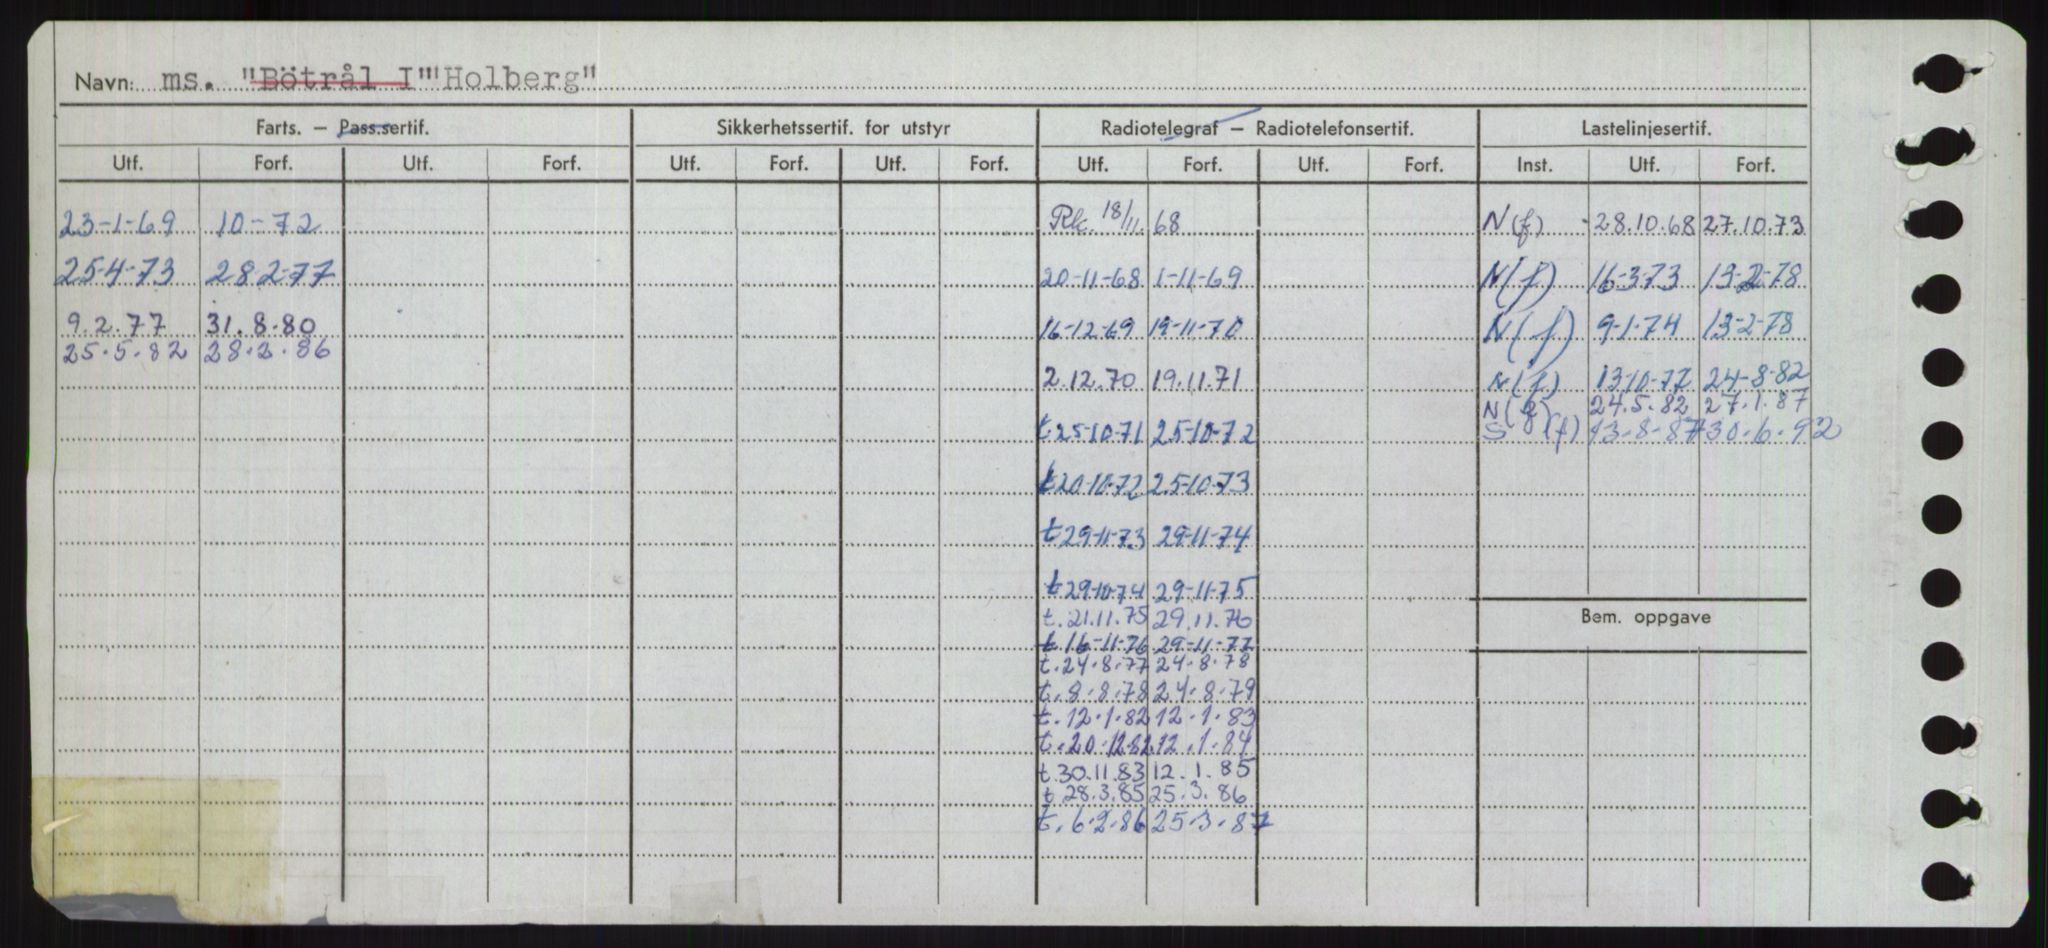 Navn: ms. "Bötrål I" "Holberg"
Farts. – Pass.sertif. Sikkerhetssertif. for utstyr Radiotelegraf – Radiotelefonsertif. Lastelinjesertif.
Utf. Forf. Utf. Forf. Utf. Forf. Utf. Forf. Utf. Forf. Utf. Forf. Inst. Utf. Forf.
23-1-69 10-72 Rk. 18/11. 68 N(f) 28.10.68 27.10.73
25-4-73 28 2-77 20-11-68 1-11-69 N(f) 16-3-73 13-2-78
9.2.77 31.8.80 16-12-69 19-11-70 N(f) 9-1-74 13-2-78
25.5.82 28.2.86
2.12.70 19.11.71 N(f) 13-10-77 24-8-82
N(f) 24.5.82 27.1.87
t.25-10-71 25-10-72 S (f) 13-8-87 30.6.92
t 20-10-72 25-10-73
t 29-11-73 29-11-74
t 29-10-74 29-11-75
Bem. oppgave
t. 21.11.75 29.11.76
t 16-11-76 29-11-77
t. 24.8.77 24.8.78
t. 8.8.78 24.8.79
t. 12.1.82 12.1.83
t. 20.12.82 12.1.84
t. 30.11.83 12.1.85
t 28.3.85 25.3.86
t. 6.2.86 25.3.87